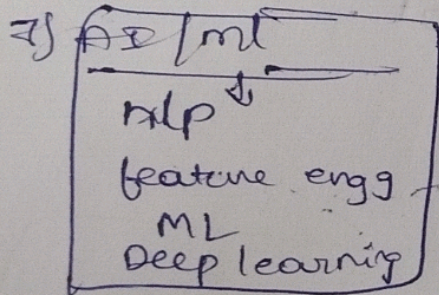 7) AI/ml
NLP
feature engg
ML
Deep learning